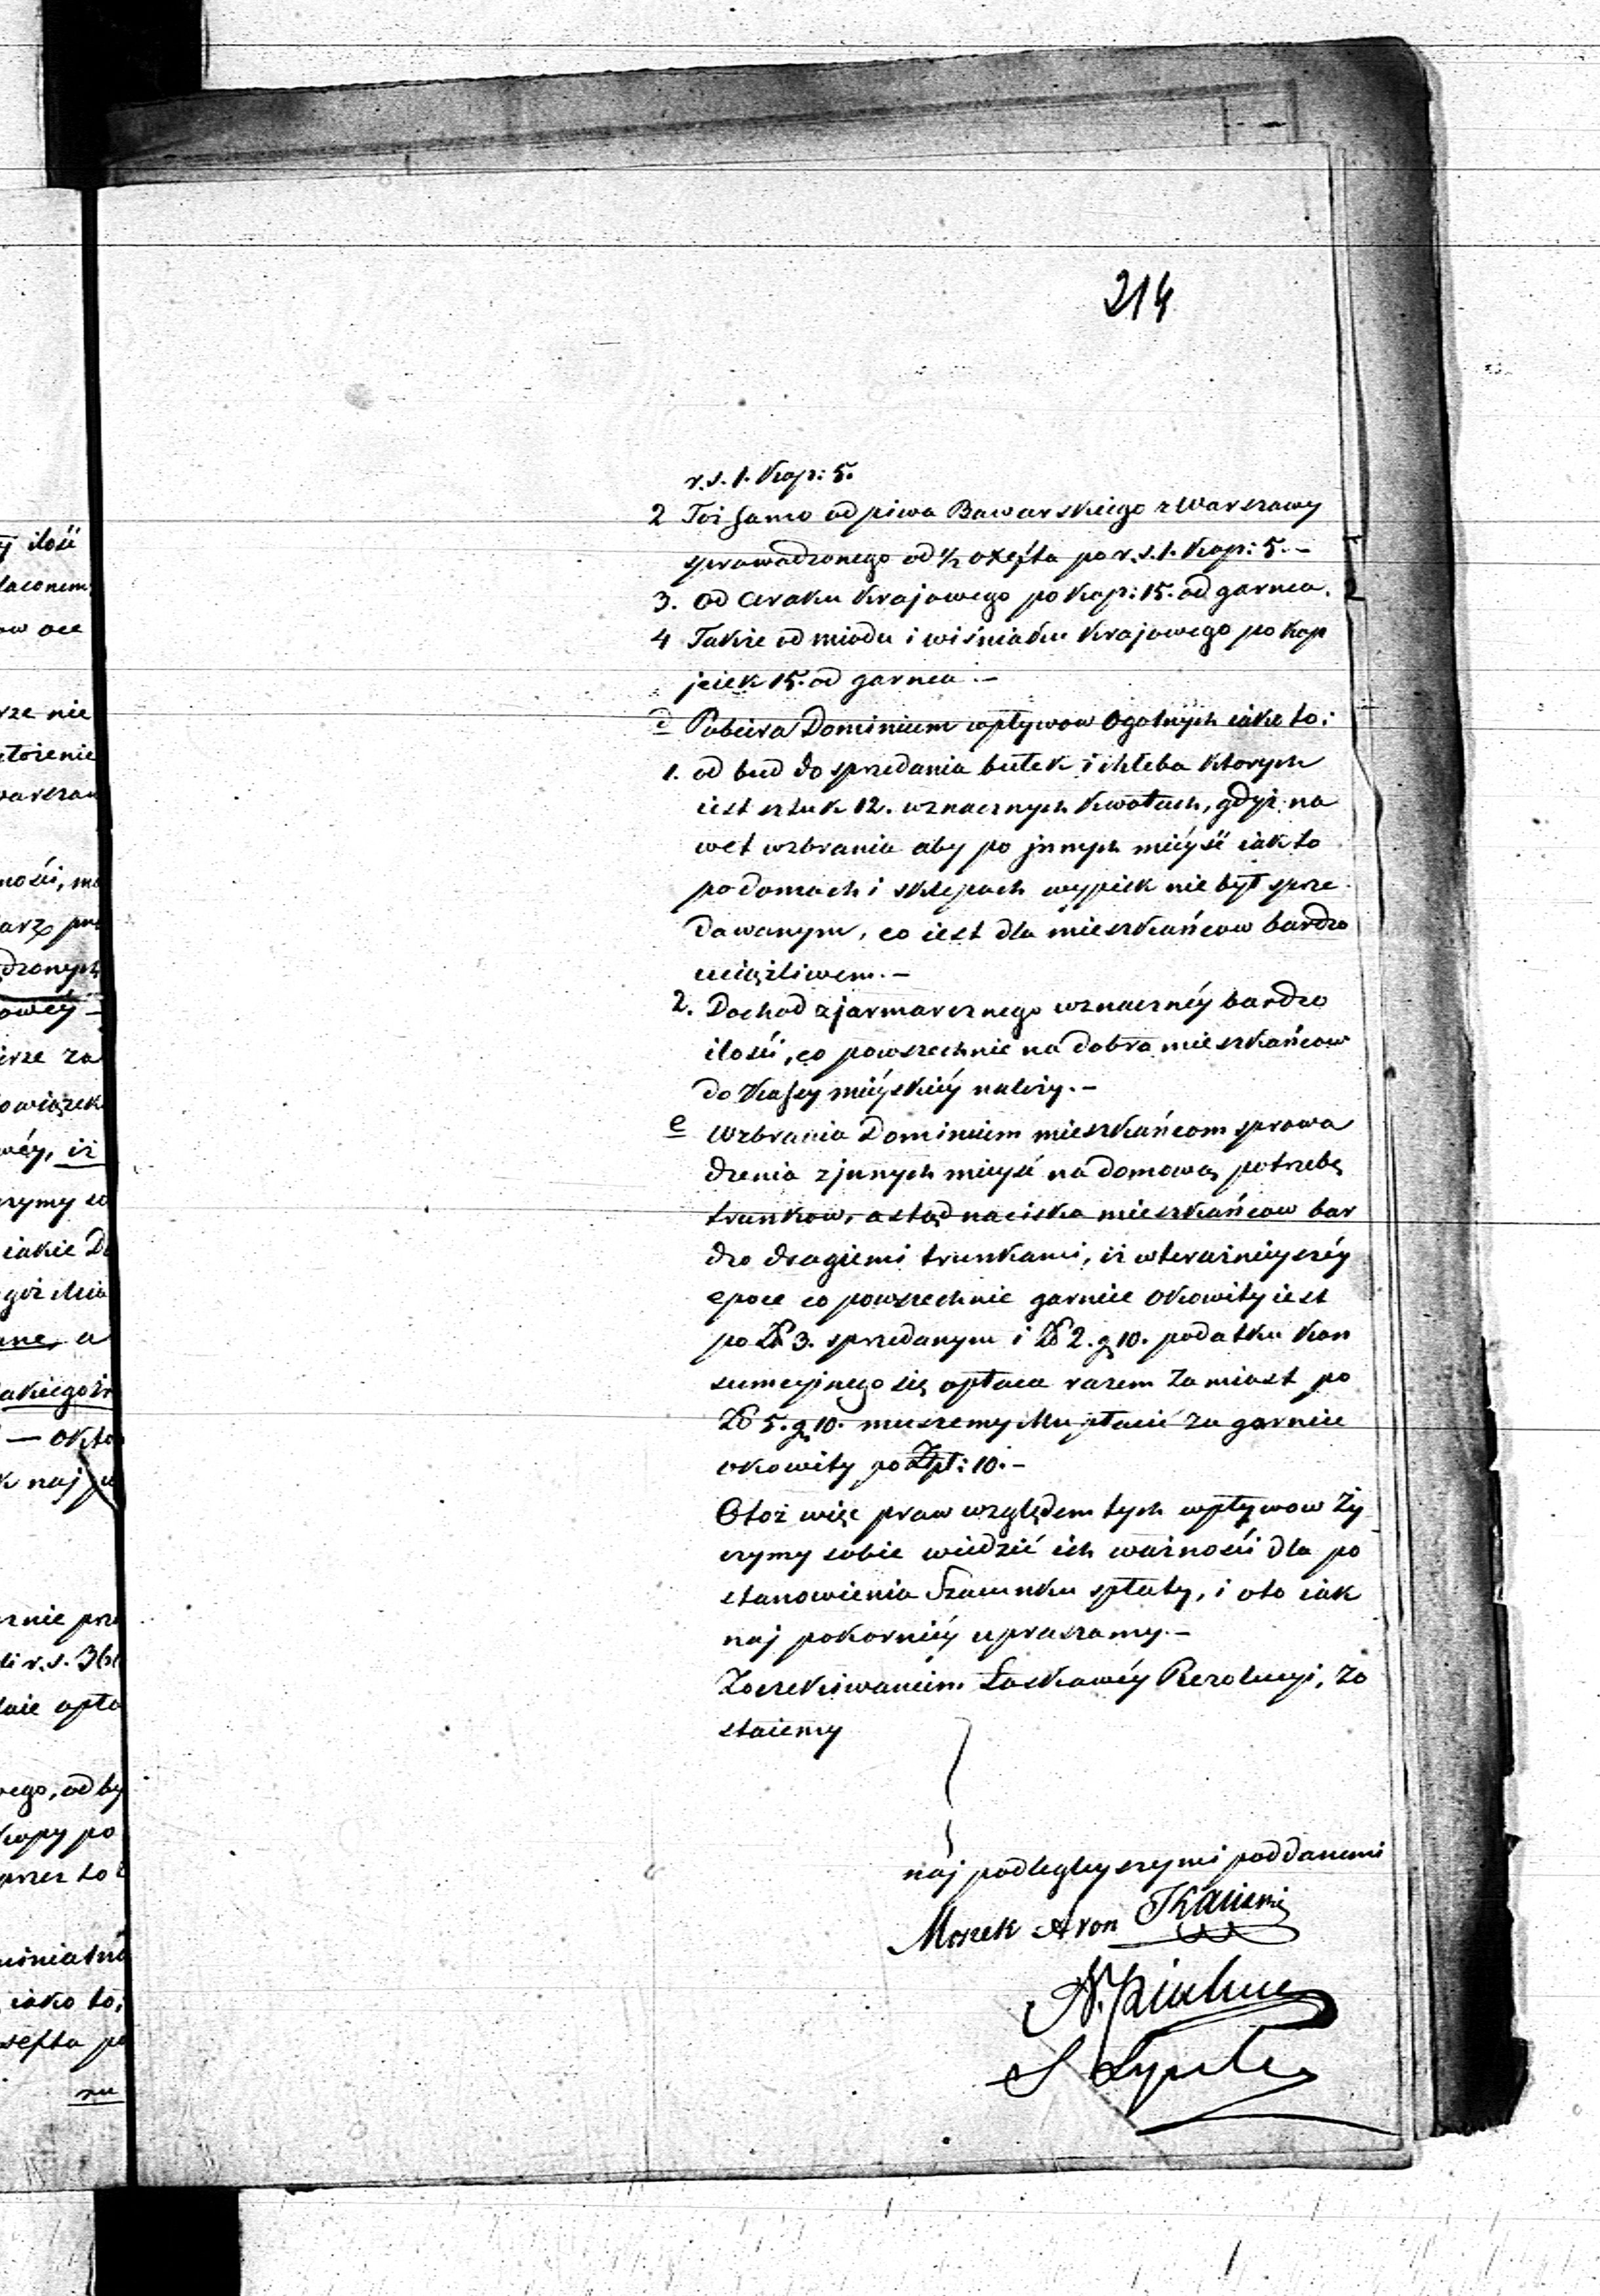 214
r.s. 1. Kop: 5.
2 Toż samo od piwa Bawarskiego z Warszawy
sprowadzonego od ½ oxefta po r.s. 1. Kop: 5.–
3. od Araku Krajowego po Kop: 15. od garnca.
4 Także od miodu i wiśniaku Krajowego po Kop
jeiek 15. od garnca.–
d Pobiera Dominium wpływow Ogolnych iako to:
1. od bud do sprzedania bułek i chleba ktorych
iest sztuk 12. wznacznych kwotach, gdyż na
wet wzbrania aby po jnnych mieyść iak to
po domach i sklepach wypiek nie był sprze
dawanym, co iest dla mieszkańcow bardzo
uciążliwem.–
2. Dochod zjarmarcznego wznacznéy bardzo
ilości, co powszechnie na dobro mieszkańcow
do Kassy mieyskiéy należy.–
e Wzbrania Dominium mieszkańcom sprowa
dzenia zjnnych mieyść na domową potrzebę
trunkow, a stąd naciska mieszkańcow bar
dzo drogiemi trunkami, iż wteraźnieyszéy
epoce co powszechnie garniec Okowity iest
po Zł 3. sprzedanym i Zł 2. g 10. podatku kon
sumcyjnego się opłaca razem Zamiast po
Zł 5. g 10. muszemy Mu płacić za garniec
okowity po Złpl: 10.–
Otoż więc praw względem tych wpływow Ży
czymy sobie wiedzić ich ważności dla po
stanowienia Szacunku spłaty, i oto iak
naj pokorniéy upraszamy.–
Zoczekiwaniem Łaskawéy Rezolucyi, Zo
staiemy
náj podlegleyszymi poddanemi
Moszek Aron
S
ilość
rze nie
łożenie
ności, mo
dzonych
irze za
iakie D
akiego
naj
r.s.
opła
ego, od by
Kopy po
przez to
iako to,